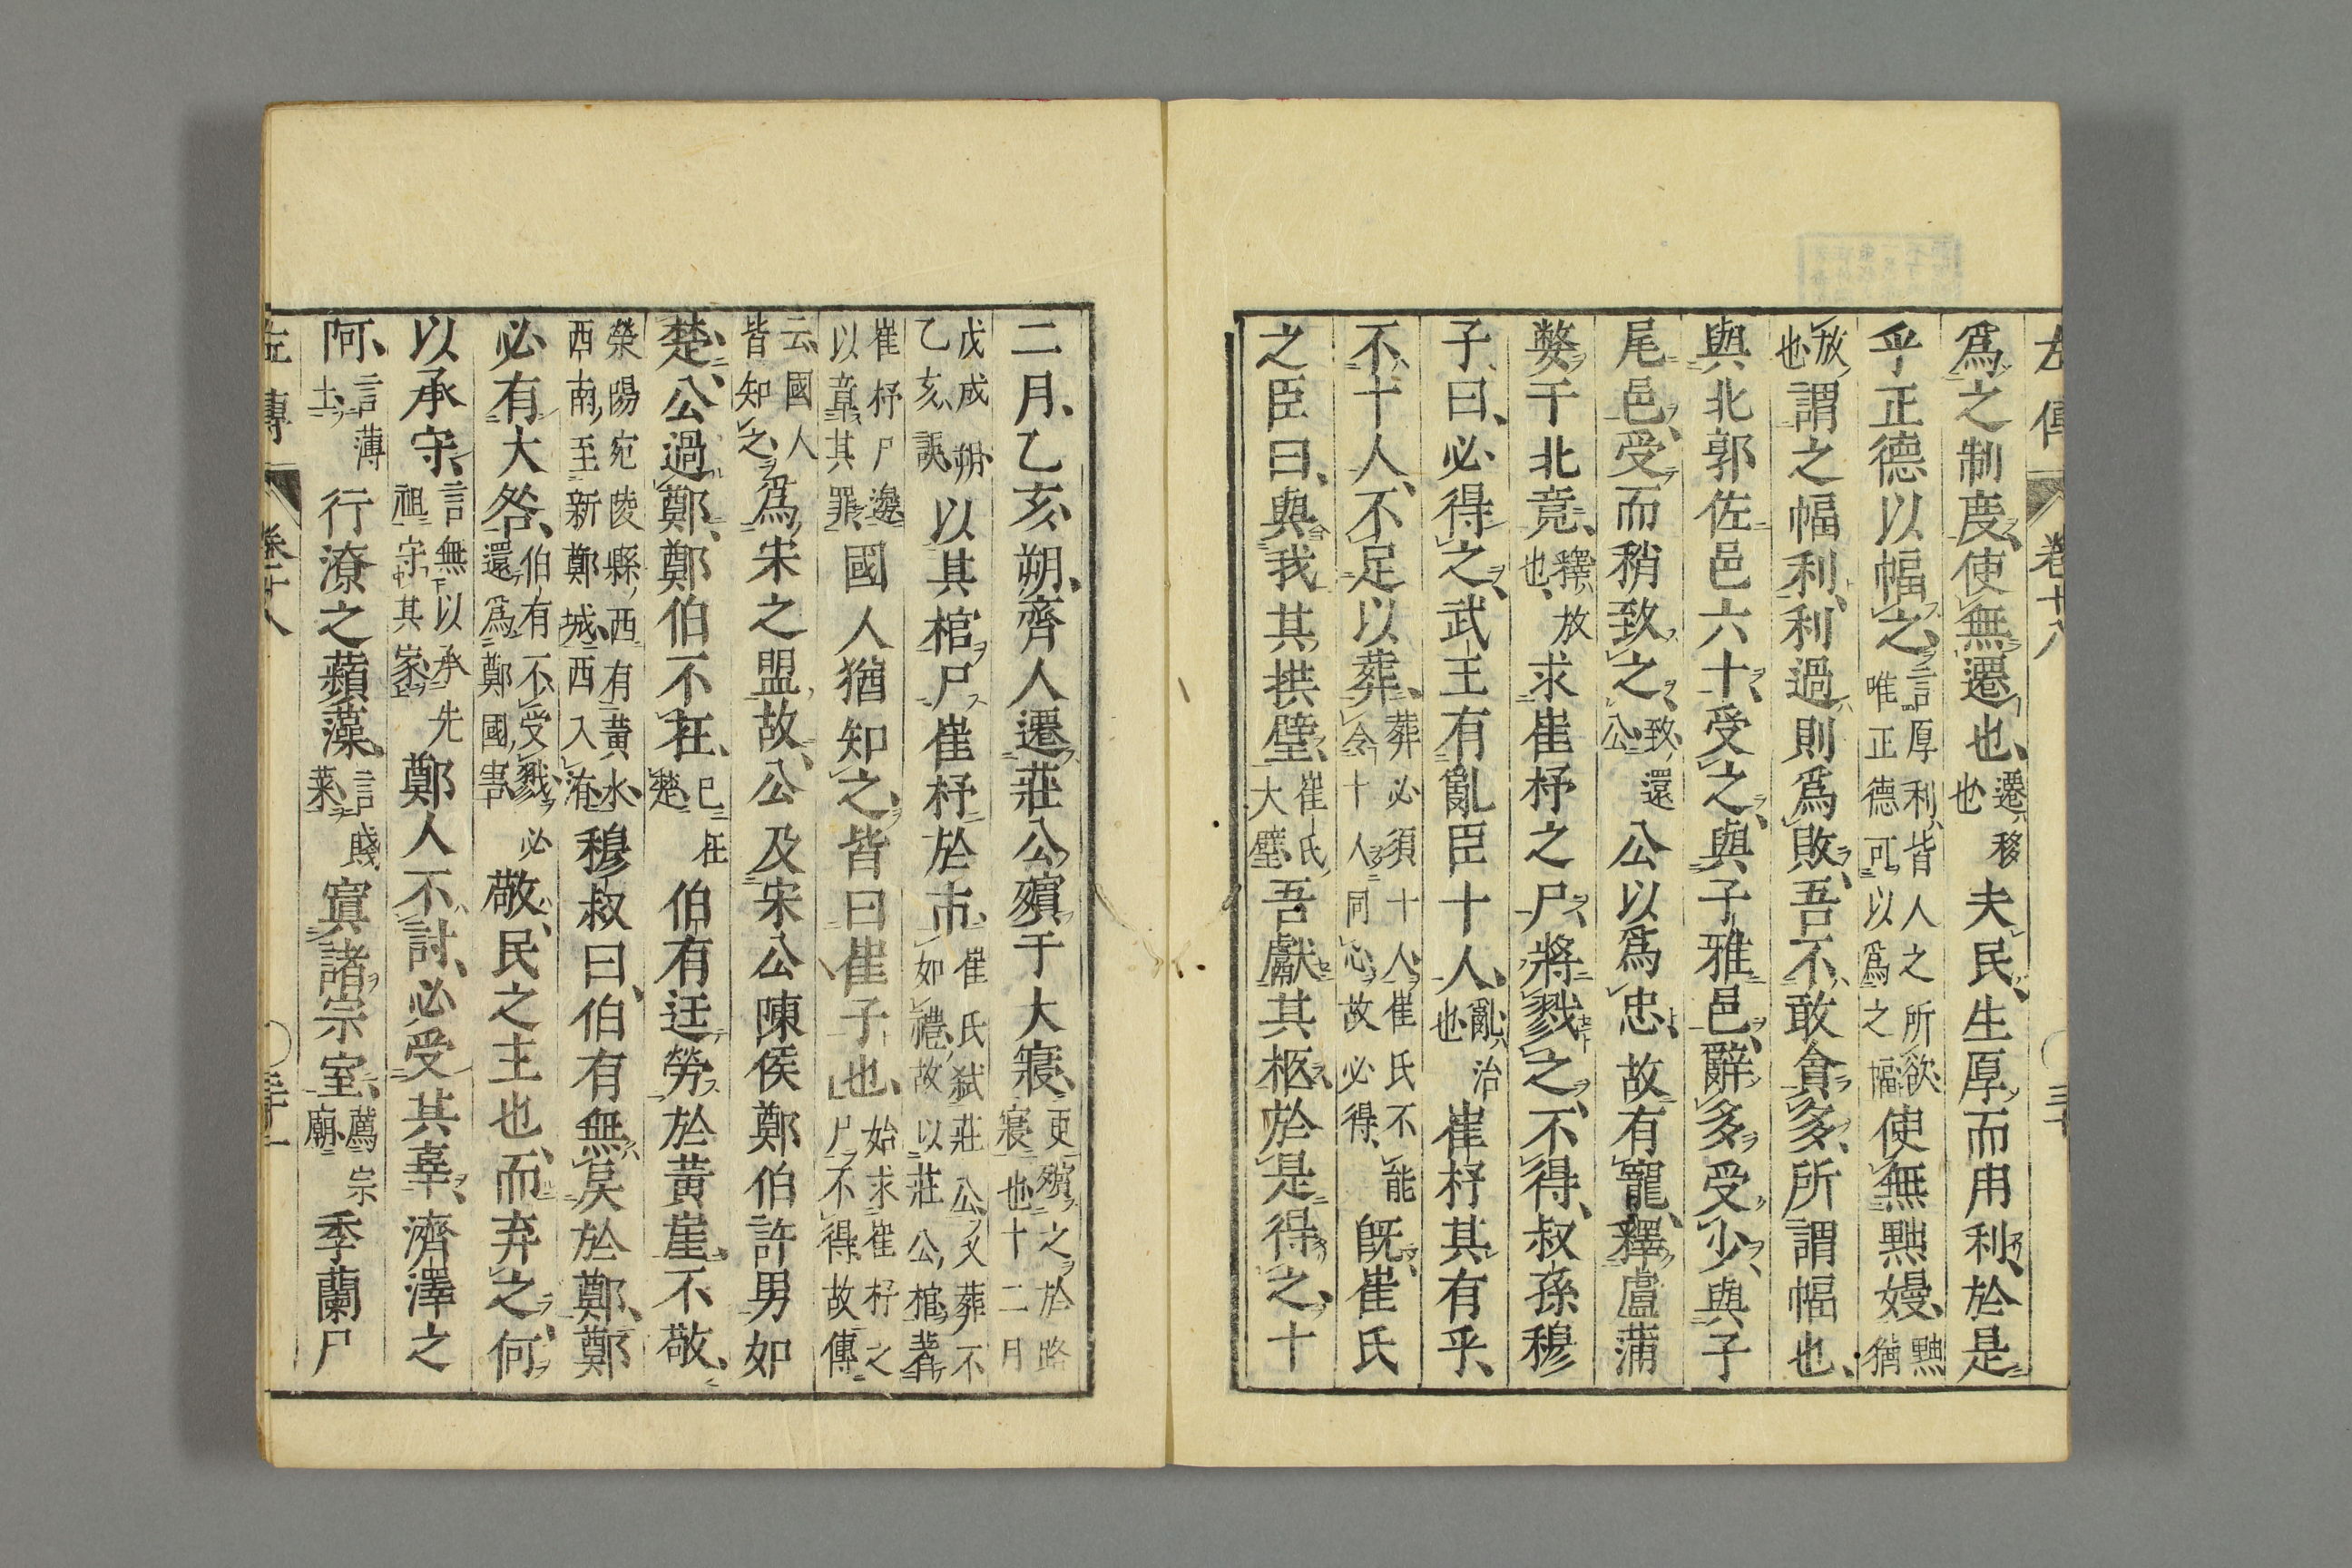 左傳 卷十八 三十
爲之制度使無遷也遷移也夫民生厚而用利於是
乎正德以幅之言厚利皆人之所欲唯正德可以爲之幅使無黜嫚黜猶
放也謂之幅利利過則爲敗吾不敢貪多所謂幅也
與北郭佐邑六十受之與子雅邑辭多受少與子
尾邑受而稍致之致還公公以爲忠故有寵釋盧蒲
嫳于北竟釋放也求崔杼之尸將戮之不得叔孫穆
子曰必得之武王有亂臣十人亂治也崔杼其有乎
不十人不足以葬葬必須十人崔氏不能令十人同心故必得既崔氏
之臣曰與我其拱璧崔氏大璧吾獻其柩於是得之十
二月乙亥朔齊人遷莊公殯于大寢更殯之於路寢也十二月
戊戌朔乙亥誤以其棺尸崔杼於市崔氏弑莊公又葬不如禮故以莊公棺著
崔杼尸邊以章其罪國人猶知之皆曰崔子也始求崔杼之尸不得故傳
云國人皆知之爲宋之盟故公及宋公陳侯鄭伯許男如
楚公過鄭鄭伯不在已在楚伯有廷勞於黃崖不敬
滎陽宛陵縣西有黃水西南至新鄭城西入洧穆叔曰伯有無戾於鄭鄭
必有大咎伯有不受戮必還爲鄭國害敬民之主也而弃之何
以承守言無以承先祖守其家鄭人不討必受其辜濟澤之
阿言薄土行潦之蘋藻言賤菜寘諸宗室薦宗廟季蘭尸
左傳 卷十八 三十一